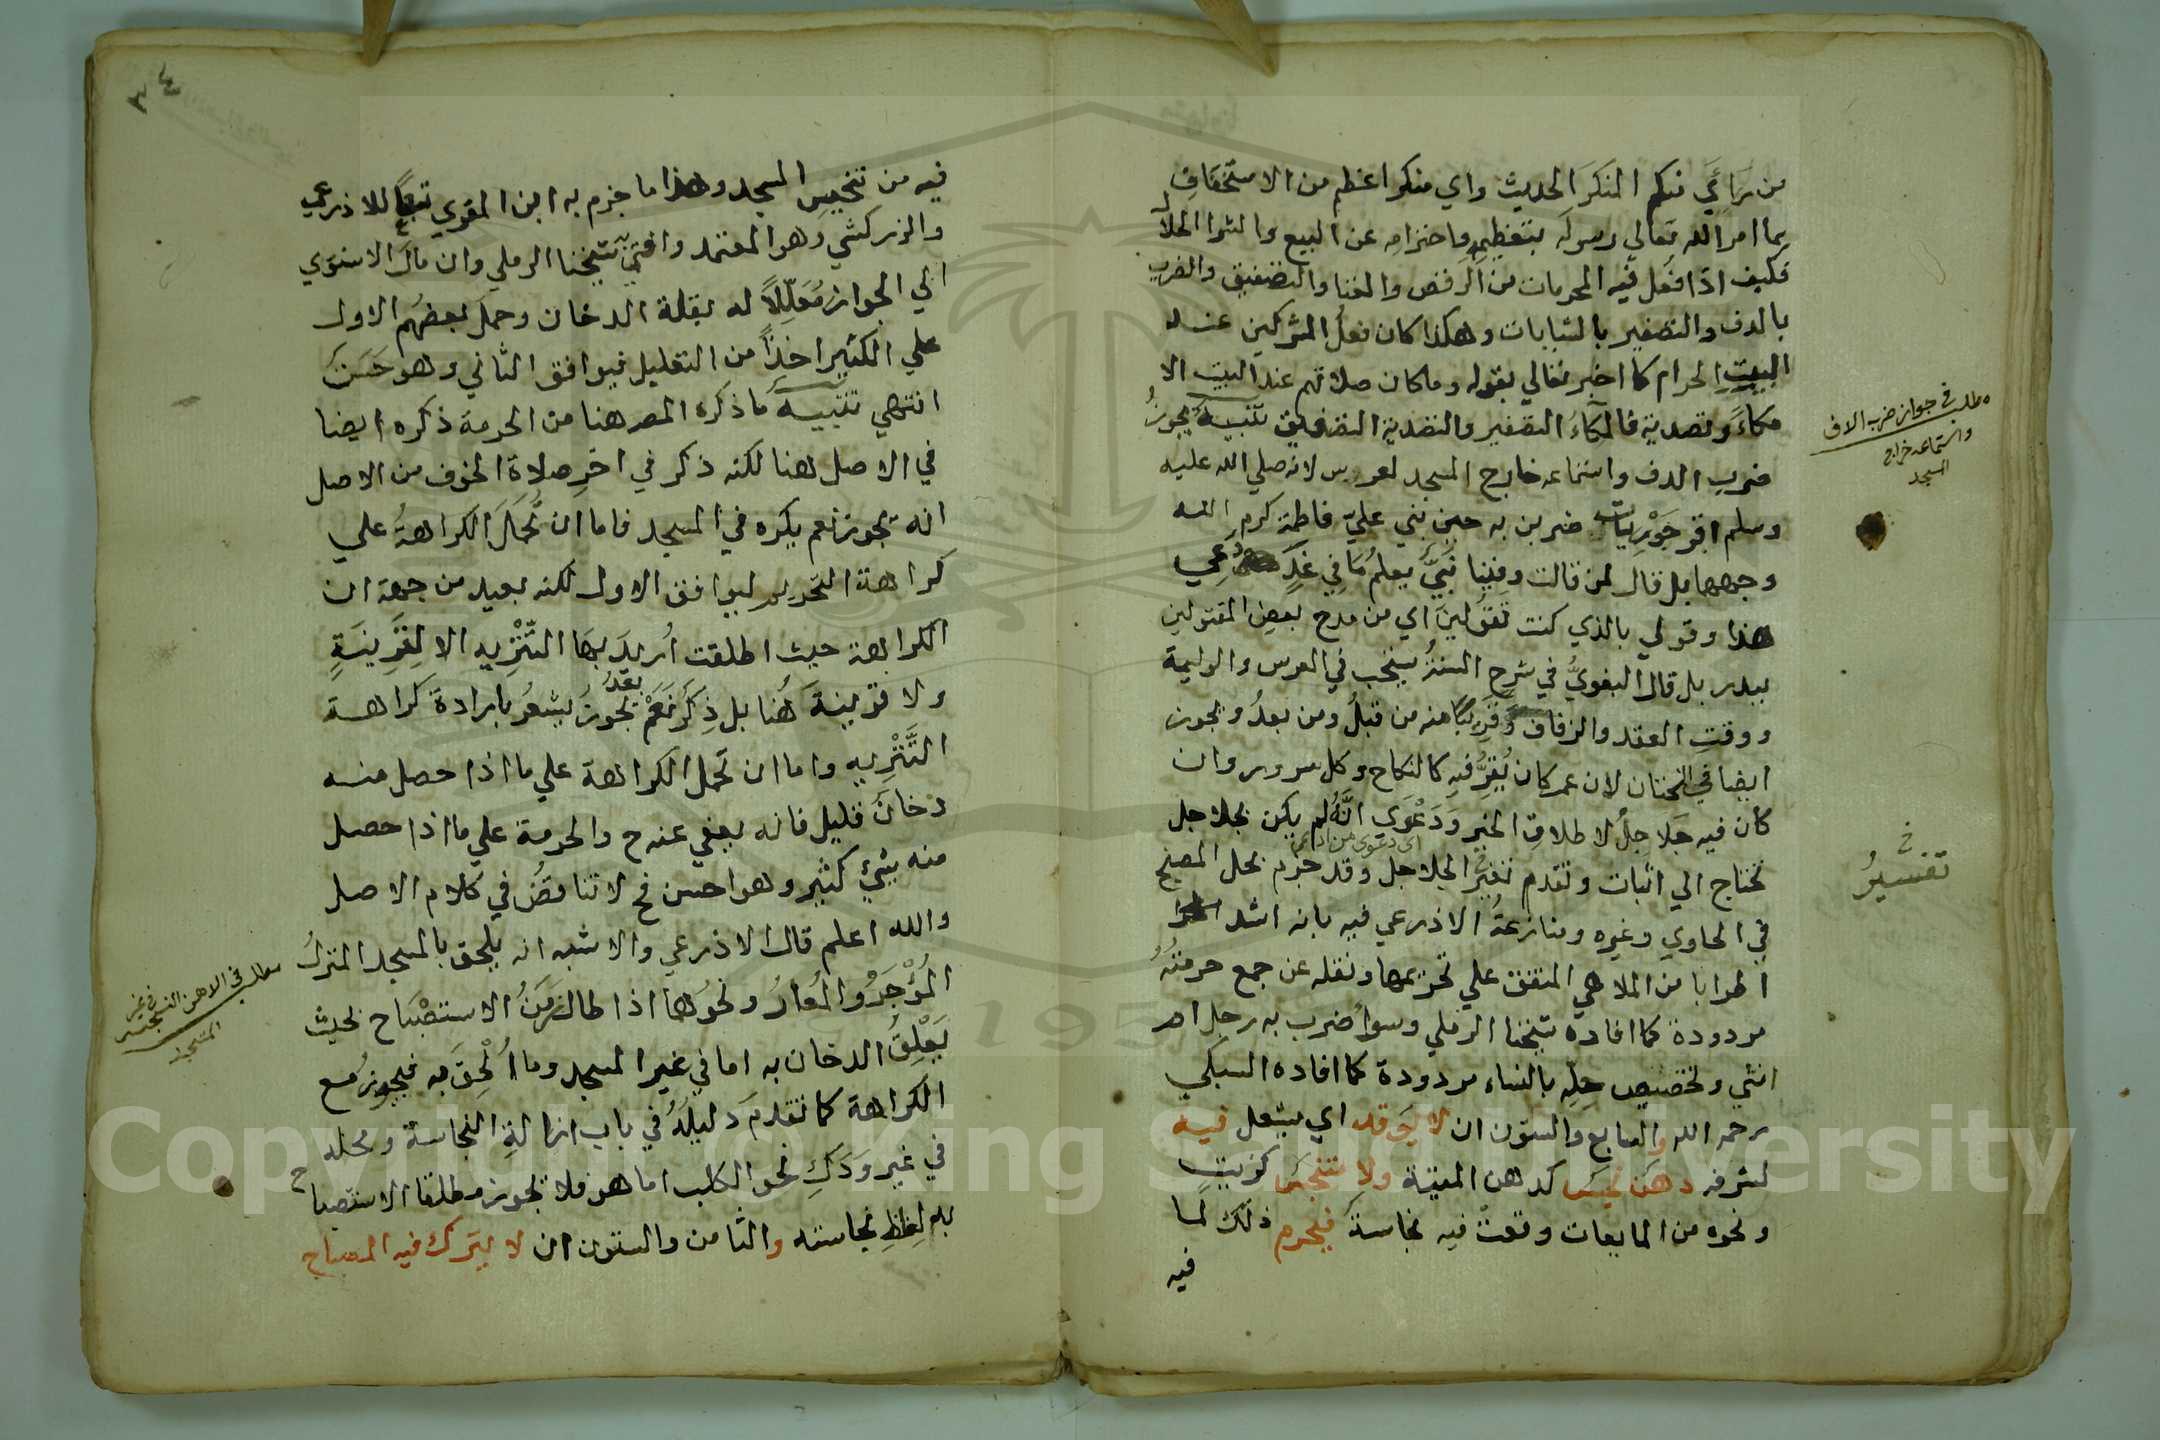 من رَأَي منكم المنكرَ الحديث واي منكر اعظم من الاستخفافِ
بما امر الله تعالي رسوله بتعظيمِه واحترامِه عن البيع والشرا الحلال
فكيف اذا فُعل فيه المحرمات من الرقص والغنا والتصفيق والضرب
بالدف والتصفير بالشبابات وهكذا كان فعلُ المشركين عند
البيتِ الحرام كما اخبر تعالي بقوله وما كان صلاتهم عند البيت الا
مكاءً وتصدية فالمكاءُ التصفير والتصدية التصفيق تنبيه يجوزُ
ضرب الدف واستماعه خارج المسجد لعرس لانه صلي الله عليه
وسلم اقر جوَيْرِيات ضربن به حين بني عليّ فاطمة كرم الله
وجهها بل قال لمن قالت وفينا نَبِيٌّ يعلمُ مَا فِي غَدٍ دَعِي
هذا وقولي بالذي كنت تقولينَ اي من مدح بعضِ المقتولين
ببدر بل قال البغويُّ في شرح السنةُ يستحب في العرس والوليمة
ووقت العقد والزفاف وَقَرِيبًا منه من قبلُ ومن بعدُ ويجوز
ايضا في الختان لان عمر كان يُقِرُّ فيه كالنكاح وكل سرور وان
كان فيه جَلاجِلُ لاطلاقِ الخبر وَدَعْوَي انَّهُ لم يكن بجلاجل
اي دعوي من ادعي
تحتاج الي اثبات وتقدم تفسير الجلاجل وقد جزم بحل الصنج
في الحاوي وغيره ومنازعةُ الاذرعي فيه بانه اشد
اطرابا من الملاهي المتفق علي تحريمها ونقله عن جمع حرمتُهُ
مردودة كما افاده شيخنا الرملي وسواءٌ ضرب به رجل ام
انثي وتخصيص حِلِّهِ بالنساء مردودة كما افاده السبكي
رحمه الله والسابع والستون ان لا يُوقد اي يشعل فيه
لشرفه دهن نجس كدهن الميتة ولا متنجس كزيتٍ
ونحوه من المايعات وقعتْ فيه نجاسة فيحرم ذلك لما
فيه
مطلب في جواز ضرب الدف
واستماعه خارج
المسجد
خ
تفسيرُ
٣٤
فيه من تنجيسِ المسجد وهذا ما جزم به ابن المقري تبعًا للاذرعي
والزركشي وهو المعتمد وافتي به شيخنا الرملي وان مال الاسنوي
الي الجواز مُعَلِّلاً له بقلة الدخان وحملَ بعضُهم الاول
علي الكثير اخذًا من التعليل فيوافق الثاني وهو حَسَنٌ
انتهي تنبيه ما ذكره المصر هنا من الحرمة ذكره ايضا
في الاصل هنا لكنه ذكر في اخرِ صلاة الخوف من الاصل
انه يجوز نعم يكره في المسجد فاما ان تُحمَلَ الكراهةُ علي
كراهة التحريم ليوافق الاول لكنه بعيد من جهة ان
الكراهة حيث اطلقت اُريدَ بهَا التَّنْزِيه الا لِقَرِينَةٍ
ولا قرينةَ هُنا بل ذِكْرُ نَعَمْ بعدُ يجوزُ يشعرُ بارادة كراهة
التَّنْزِيه واما ان تُحمل الكراهة علي ما اذا حصل منه
دخانٌ قليل فانه يعفي عنه ح والحرمة علي ما اذا حصل
منه شيءٌ كثير وهو احسن فح لا تناقضُ في كلام الاصل
والله اعلم قال الاذرعي والاشبه انه يلحق بالمسجد المنزلُ
المُؤْجَرُ والمُعارُ ونحوُهما اذا طال زَمَنُ الاستصْبَاح بحيث
يَعْلِقُ الدخان به اما في غير المسجد وما اُلْحِقَ به فيجوزُ مع
الكراهة كما تقدمَ دليلُهُ في باب ازالةِ النجاسة ومحله
في غير وَدَكِ نحو الكلب اما هو فلا يجوز مطلقا الاستصباح
به لغلظِ نجاسته والثامن والستون ان لا يترك فيه المصباح
مطلب في الدهن النجس في غير
المسجد